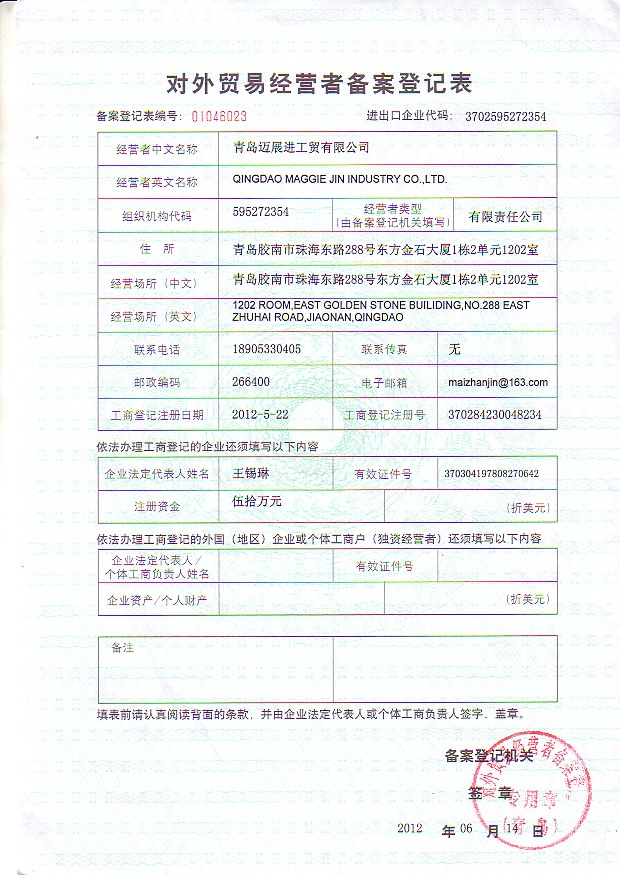 对外贸易经营者备案登记表
备案登记表编号： 01046023 进出口企业代码： 3702595272354
经营者中文名称 青岛迈展进工贸有限公司
经营者英文名称 QINGDAO MAGGIE JIN INDUSTRY CO.,LTD.
组织机构代码 595272354 经营者类型 (由备案登记机关填写) 有限责任公司
住 所 青岛胶南市珠海东路288号东方金石大厦1栋2单元1202室
经营场所（中文） 青岛胶南市珠海东路288号东方金石大厦1栋2单元1202室
经营场所（英文） 1202 ROOM,EAST GOLDEN STONE BUILIDING,NO.288 EAST
ZHUHAI ROAD,JIAONAN,QINGDAO
联系电话 18905330405 联系传真 无
邮政编码 266400 电子邮箱 maizhanjin@163.com
工商登记注册日期 2012-5-22 工商登记注册号 370284230048234
依法办理工商登记的企业还须填写以下内容
企业法定代表人姓名 王锡琳 有效证件号 370304197808270642
注册资金 伍拾万元 (折美元)
依法办理工商登记的外国（地区）企业或个体工商户（独资经营者）还须填写以下内容
企业法定代表人/
个体工商负责人姓名 有效证件号
企业资产/个人财产 (折美元)
备注
填表前请认真阅读背面的条款，并由企业法定代表人或个体工商负责人签字、盖章。
备案登记机关
签 章
2012 年 06 月 14 日
对外贸易经营者备案登记
专用章
(青岛)